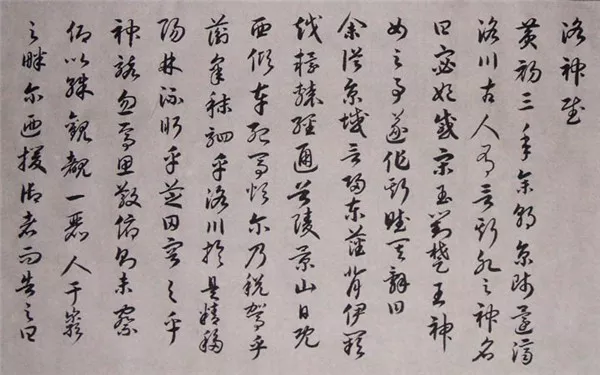 洛神賦
黃初三年余朝京師還濟
洛川古人有言斯水之神名
曰宓妃感宋玉對楚王神
女之事遂作斯賦其辭曰
余從京域言歸東藩背伊闕
越轘轅經通谷陵景山日既
西傾車殆馬煩爾乃稅駕乎
蘅皋秣駟乎洛川於是精移
陽林流眄乎芝田容与乎
神駭忽焉思散俯則未察
仰以殊觀覩一麗人于巖
之畔爾迺援御者而告之曰